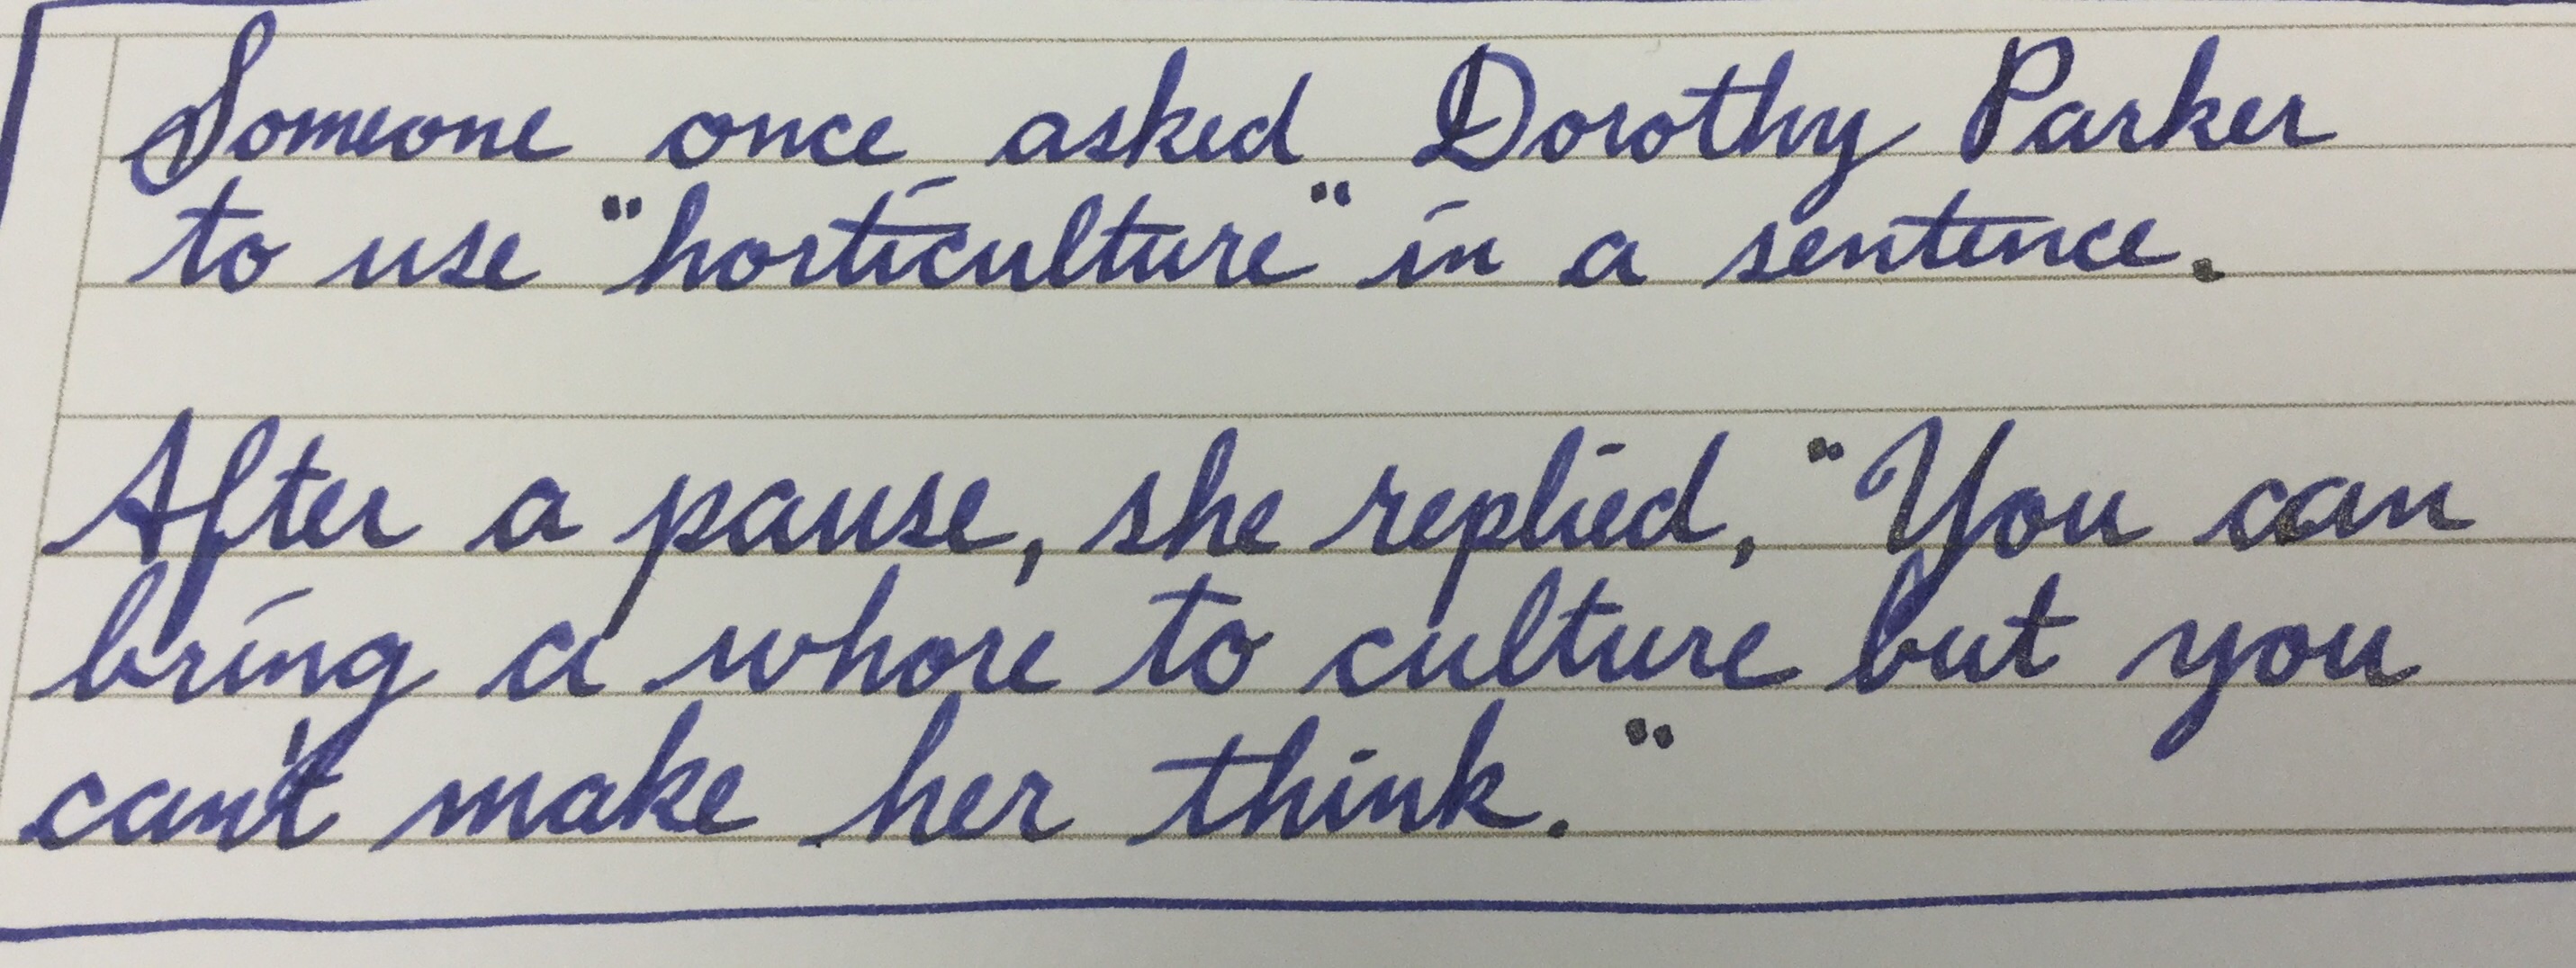 Someone once asked Dorothy Parker
to use "horticulture" in a sentence.
After a pause, she replied, "You can
bring a whore to culture but you
can't make her think."